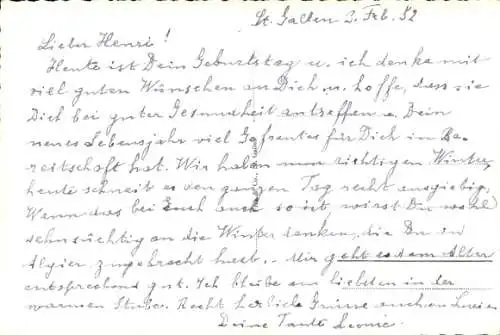 St. Gallen 2. Feb. 52
Lieber Henri!
Heute ist Dein Geburtstag u. ich denke mit
viel guten Wünschen an Dich u. hoffe, dass sie
Dich bei guter Gesundheit antreffen u. Dein
neues Lebensjahr viel Gefreutes für Dich in Be-
reitschaft hat. Wir haben nun richtigen Winter,
heute schneit es den ganzen Tag recht ausgiebig.
Wenn das bei Euch auch so ist, wirst Du wohl
sehnsüchtig an die Winter denken, die Du in
Algier zugebracht hast. Mir geht es dem Alter
entsprechend gut. Ich bleibe am liebsten in der
warmen Stube. Recht herzliche Grüsse auch an
Deine Tante Leonie.